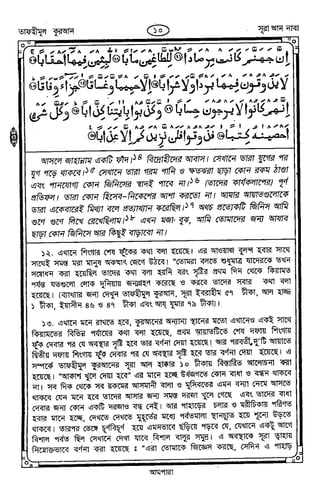 তাফহীমুল কুরআন ১০ সূরা আন নাবা
إِنَّ جَهَنَّمَ كَانَتْ مِرْصَادًا لِّلطَّاغِينَ مَآبًا لَّابِثِينَ فِيهَا أَحْقَابًا
لَا يَذُوقُونَ فِيهَا بَرْدًا وَلَا شَرَابًا إِلَّا حَمِيمًا وَغَسَّاقًا جَزَاءً وِفَاقًا
إِنَّهُمْ كَانُوا لَا يَرْجُونَ حِسَابًا وَكَذَّبُوا بِآيَاتِنَا كِذَّابًا وَكُلَّ شَيْءٍ
أَحْصَيْنَاهُ كِتَابًا فَذُوقُوا فَلَن نَّزِيدَكُمْ إِلَّا عَذَابًا
আসলে জাহান্নাম একটি ফাঁদ।১৪ বিদ্রোহীদের আবাস। সেখানে তারা যুগের পর
যুগ পড়ে থাকবে।১৫ সেখানে তারা গরম পানি ও ক্ষতঝরা ছাড়া কোন রকম ঠাণ্ডা
এবং পানযোগ্য কোন জিনিসের স্বাদই পাবে না।১৬ (তাদের কার্যকলাপের) পূর্ণ
প্রতিফল। তারা কোন হিসেব-নিকেশের আশা করতো না। আমার আয়াতগুলোকে
তারা একেবারেই মিথ্যা বলে প্রত্যাখ্যান করেছিল।১৭ অথচ প্রত্যেকটি জিনিস আমি
গুণে গুণে লিখে রেখেছিলাম।১৮ এখন মজা বুঝ, আমি তোমাদের জন্য আযাব
ছাড়া কোন জিনিসে আর কিছুই বাড়াবো না।
১২. এখানে শিংগার শেষ ফুঁকের কথা বলা হয়েছে। এর আওয়াজ বুলন্দ হবার সাথে
সাথেই সমস্ত মরা মানুষ অকস্মাৎ জেগে উঠবে। "তোমরা বলতে শুধুমাত্র যাদেরকে তখন
সম্বোধন করা হয়েছিল তাদের কথা বলা হয়নি বরং সৃষ্টির প্রথম দিন থেকে কিয়ামত
পর্যন্ত যতগুলো লোক দুনিয়ায় জন্মগ্রহণ করেছে ও করবে তাদের সবার কথা বলা
হয়েছে। (ব্যাখ্যার জন্য দেখুন তাফহীমুল কুরআন, সূরা ইবরাহীম ৫৭ টীকা, আল হাজ্জ
১ টীকা, ইয়াসীন ৪৬ ও ৪৭ টীকা এবং আয যুমার ৭৯ টীকা)।
১৩. এখানে মনে রাখতে হবে, কুরআনের অন্যান্য স্থানের মতো এখানেও একই সাথে
কিয়ামতের বিভিন্ন পর্যায়ের কথা বলা হয়েছে, প্রথম আয়াতটিতে শেষ দফায় শিংগায়
ফুঁক দেবার পর যে অবস্থার সৃষ্টি হবে তার বর্ণনা দেয়া হয়েছে। আর পরবর্তী দু'টি আয়াতে
দ্বিতীয় দফায় শিংগায় ফুঁক দেবার পর যে অবস্থার সৃষ্টি হবে তার বর্ণনা দেয়া হয়েছে। এ
সম্পর্কে তাফহীমুল কুরআনের সূরা আল হাক্কার ১০ টীকায় বিস্তারিত আলোচনা করা
হয়েছে। "আকাশ খুলে দেয়া হবে" এর মানে হচ্ছে উর্ধজগতে কোন বাধা ও বন্ধন থাকবে
না। সব দিক থেকে সব রকমের আসমানী বালা ও মুসিবতের এমন বন্যা নেমে আসতে
থাকবে যেন মনে হবে তাদের আসার জন্য সমস্ত দরজা খুলে গেছে এবং তাদের বাধা
দেবার জন্য কোন একটি দরজাও বন্ধ নেই। আর পাহাড়ের চলার ও মরীচিকায় পরিণত
হবার মানে হচ্ছে, দেখতে দেখতে মুহূর্তের মধ্যে পর্বতমালা স্থানচ্যুত হয়ে শূন্যে উড়তে
থাকবে। তারপর ভেঙ্গে চূর্ণবিচূর্ণ হয়ে এমনভাবে ছড়িয়ে পড়বে যে, যেখানে একটু আগে
বিশাল পর্বত ছিল সেখানে দেখা যাবে বিশাল বালুর সমুদ্র। এ অবস্থাকে সূরা ত্বাহায়
নিম্নোক্তভাবে বর্ণনা করা হয়েছে : "এরা তোমাকে জিজ্ঞেস করছে, সেদিন এ পাহাড়
আমপারা